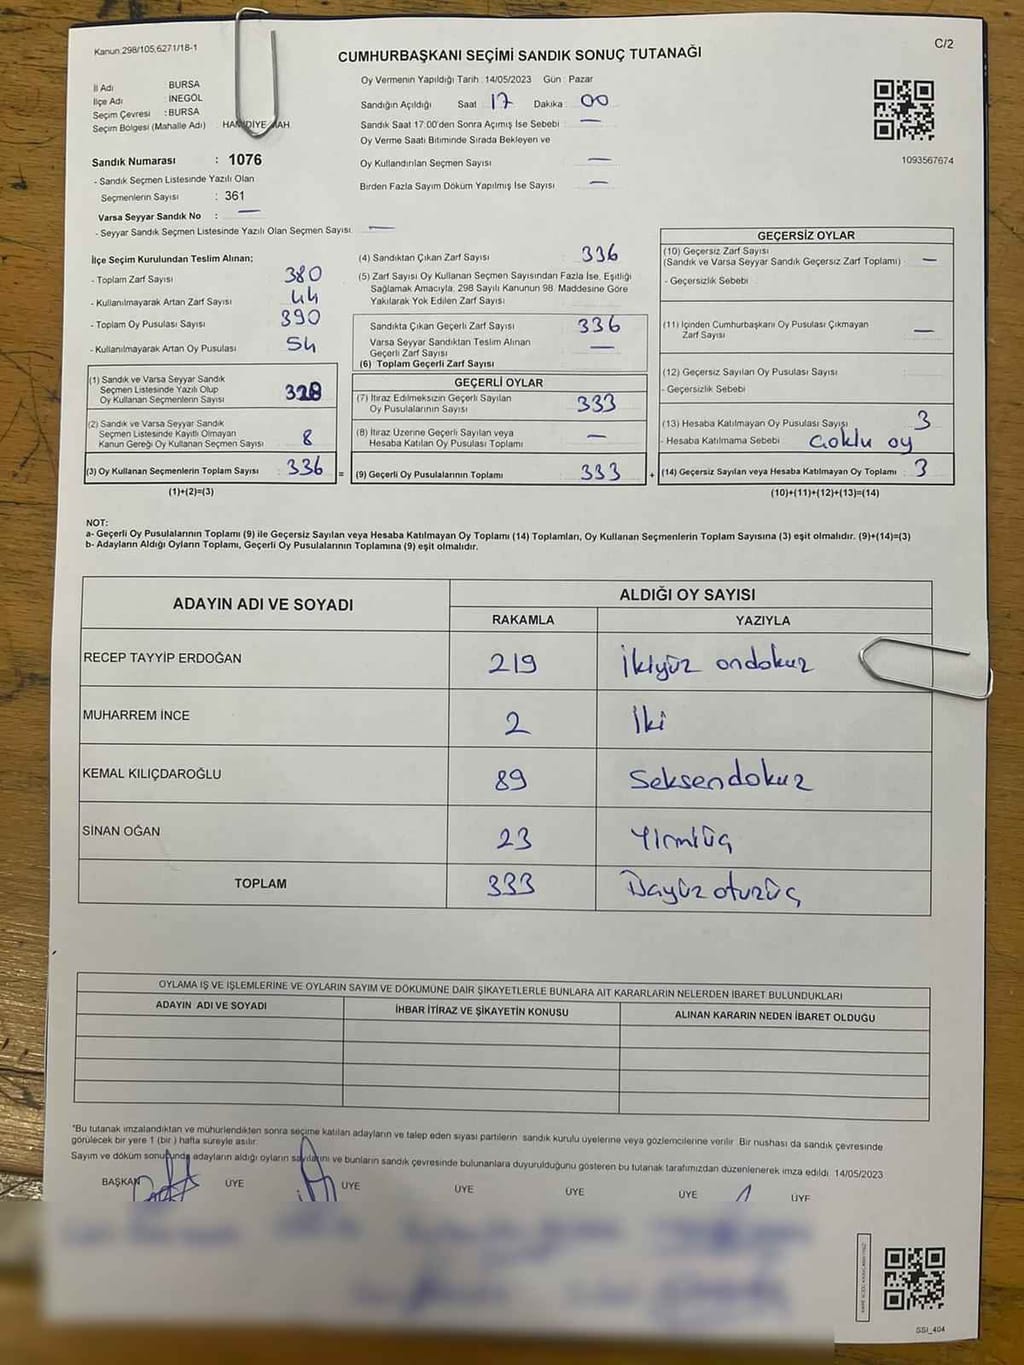 Kanun 298/105,6271/18-1
C/2
CUMHURBAŞKANI SEÇİMİ SANDIK SONUÇ TUTANAĞI
İl Adı : BURSA
İlçe Adı : İNEGÖL
Seçim Çevresi : BURSA
Seçim Bölgesi (Mahalle Adı) HAMİDİYE MAH
Sandık Numarası : 1076
- Sandık Seçmen Listesinde Yazılı Olan
Seçmenlerin Sayısı : 361
Varsa Seyyar Sandık No : —
- Seyyar Sandık Seçmen Listesinde Yazılı Olan Seçmen Sayısı —
Oy Vermenin Yapıldığı Tarih :14/05/2023 Gün : Pazar
Sandığın Açıldığı Saat 17 Dakika 00
Sandık Saat 17:00'den Sonra Açımış İse Sebebi : —
Oy Verme Saati Bitiminde Sırada Bekleyen ve
Oy Kullandırılan Seçmen Sayısı —
Birden Fazla Sayım Döküm Yapılmış İse Sayısı —
1093567674
İlçe Seçim Kurulundan Teslim Alınan;
- Toplam Zarf Sayısı 380
- Kullanılmayarak Artan Zarf Sayısı 44
- Toplam Oy Pusulası Sayısı 390
- Kullanılmayarak Artan Oy Pusulası 54
(1) Sandık ve Varsa Seyyar Sandık
Seçmen Listesinde Yazılı Olup
Oy Kullanan Seçmenlerin Sayısı 328
(2) Sandık ve Varsa Seyyar Sandık
Seçmen Listesinde Kayıtlı Olmayan
Kanun Gereği Oy Kullanan Seçmen Sayısı 8
(3) Oy Kullanan Seçmenlerin Toplam Sayısı 336 =
(1)+(2)=(3)
(4) Sandıktan Çıkan Zarf Sayısı 336
(5) Zarf Sayısı Oy Kullanan Seçmen Sayısından Fazla İse, Eşitliği
Sağlamak Amacıyla, 298 Sayılı Kanunun 98. Maddesine Göre
Yakılarak Yok Edilen Zarf Sayısı
Sandıkta Çıkan Geçerli Zarf Sayısı 336
Varsa Seyyar Sandıktan Teslim Alınan
Geçerli Zarf Sayısı —
(6) Toplam Geçerli Zarf Sayısı
GEÇERLİ OYLAR
(7) İtiraz Edilmeksizin Geçerli Sayılan
Oy Pusulalarının Sayısı 333
(8) İtiraz Üzerine Geçerli Sayılan veya
Hesaba Katılan Oy Pusulası Toplamı —
(9) Geçerli Oy Pusulalarının Toplamı 333 +
GEÇERSİZ OYLAR
(10) Geçersiz Zarf Sayısı
(Sandık ve Varsa Seyyar Sandık Geçersiz Zarf Toplamı) —
- Geçersizlik Sebebi
(11) İçinden Cumhurbaşkanı Oy Pusulası Çıkmayan
Zarf Sayısı —
(12) Geçersiz Sayılan Oy Pusulası Sayısı
- Geçersizlik Sebebi
(13) Hesaba Katılmayan Oy Pusulası Sayısı 3
- Hesaba Katılmama Sebebi Çoklu oy
(14) Geçersiz Sayılan veya Hesaba Katılmayan Oy Toplamı 3
(10)+(11)+(12)+(13)=(14)
NOT:
a- Geçerli Oy Pusulalarının Toplamı (9) ile Geçersiz Sayılan veya Hesaba Katılmayan Oy Toplamı (14) Toplamları, Oy Kullanan Seçmenlerin Toplam Sayısına (3) eşit olmalıdır. (9)+(14)=(3)
b- Adayların Aldığı Oyların Toplamı, Geçerli Oy Pusulalarının Toplamına (9) eşit olmalıdır.
ADAYIN ADI VE SOYADI ALDIĞI OY SAYISI
RAKAMLA YAZIYLA
RECEP TAYYİP ERDOĞAN 219 İkiyüz ondokuz
MUHARREM İNCE 2 İki
KEMAL KILIÇDAROĞLU 89 Seksendokuz
SİNAN OĞAN 23 Yirmiüç
TOPLAM 333 Üçyüz otuzüç
OYLAMA İŞ VE İŞLEMLERİNE VE OYLARIN SAYIM VE DÖKÜMÜNE DAİR ŞİKAYETLERLE BUNLARA AİT KARARLARIN NELERDEN İBARET BULUNDUKLARI
ADAYIN ADI VE SOYADI İHBAR İTİRAZ VE ŞİKAYETİN KONUSU ALINAN KARARIN NEDEN İBARET OLDUĞU
*Bu tutanak imzalandıktan ve mühürlendikten sonra seçime katılan adayların ve talep eden siyasi partilerin sandık kurulu üyelerine veya gözlemcilerine verilir. Bir nushası da sandık çevresinde
görülecek bir yere 1 (bir ) hafta süreyle asılır.
Sayım ve döküm sonucunda adayların aldığı oyların sayılarını ve bunların sandık çevresinde bulunanlara duyurulduğunu gösteren bu tutanak tarafımızdan düzenlenerek imza edildi. 14/05/2023
BAŞKAN ÜYE ÜYE ÜYE ÜYE ÜYE ÜYE
SSI_404